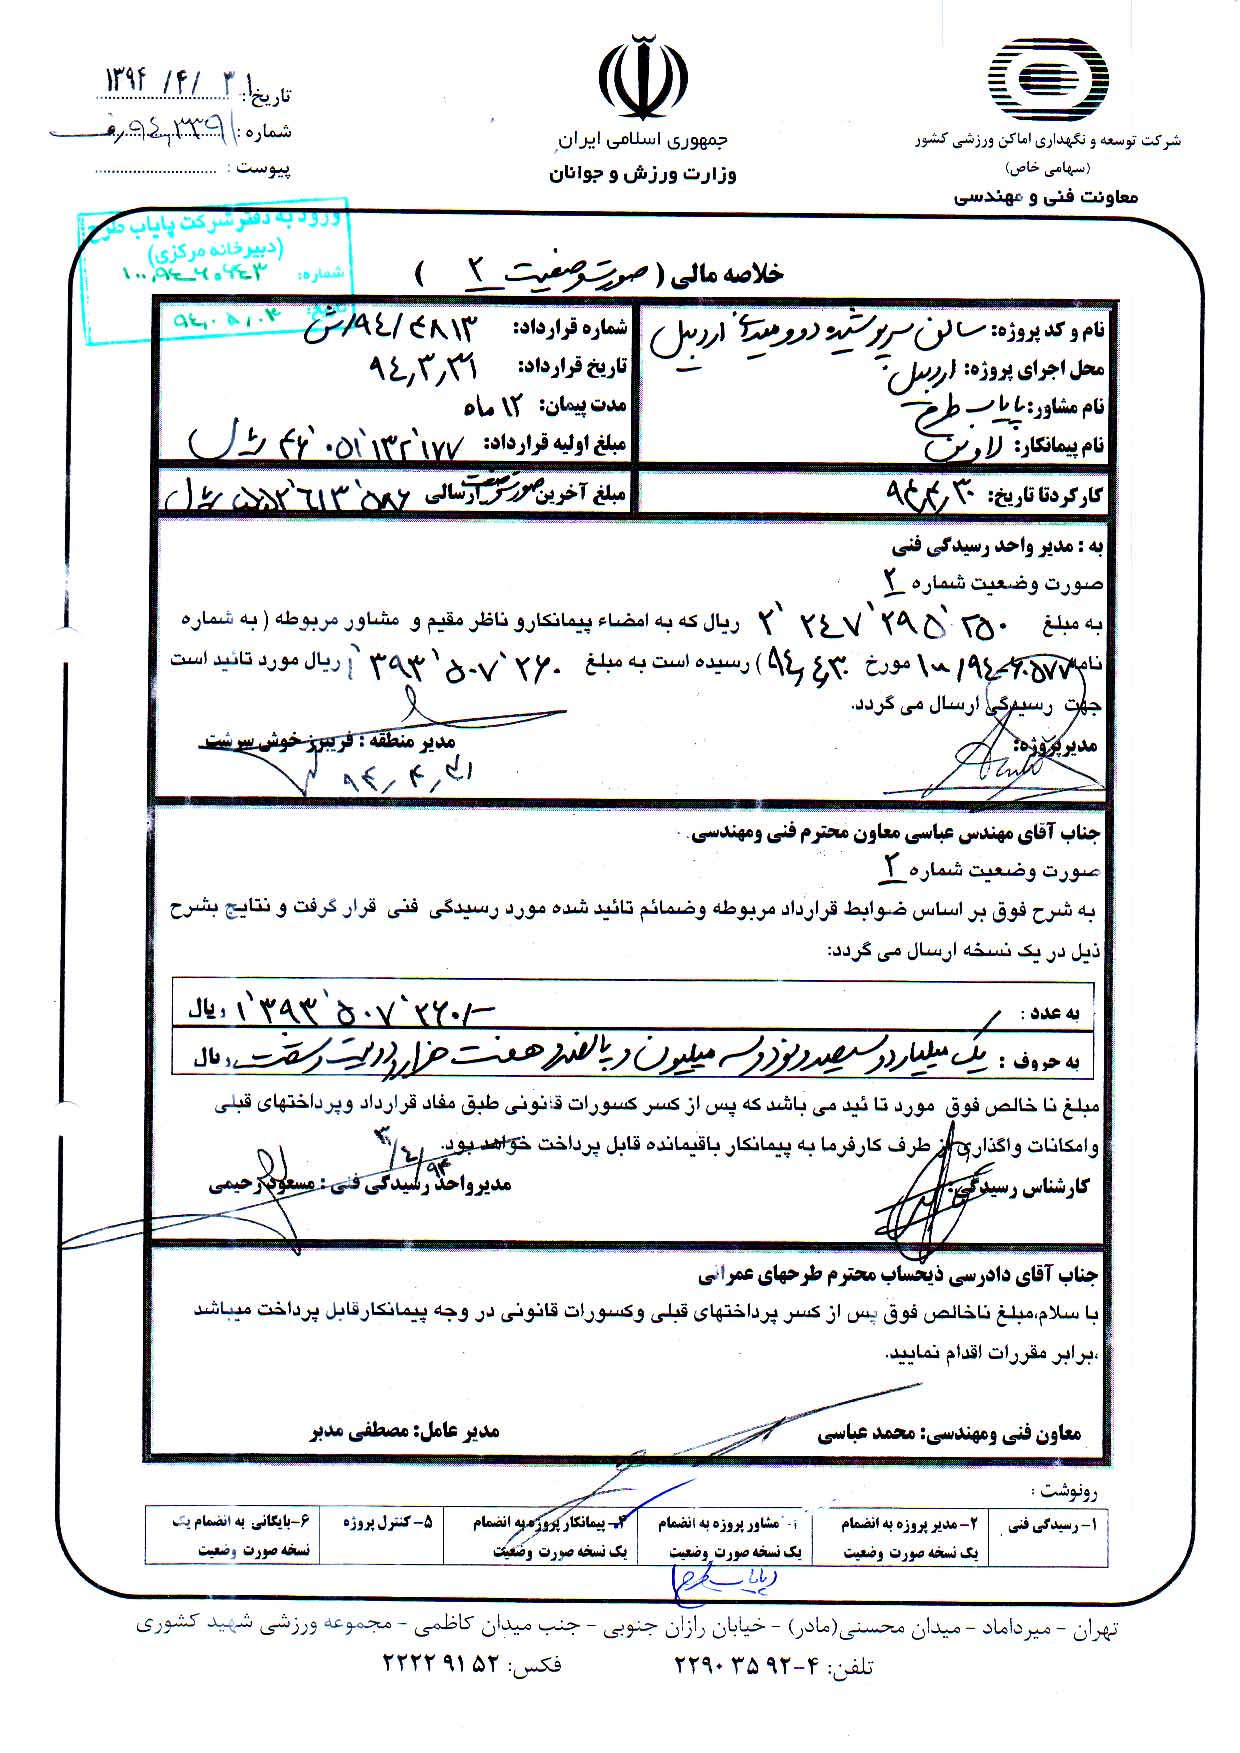 شرکت توسعه و نگهداری اماکن ورزشی کشور
(سهامی خاص)
معاونت فنی و مهندسی
جمهوری اسلامی ایران
وزارت ورزش و جوانان
تاریخ: ۱۳۹۴/۴/۳۱
شماره:
پیوست:
ورود به دفتر شرکت پایاب طرح
(دبیرخانه مرکزی)
شماره:
تاریخ: ۹۴،۰۵،۰۳
خلاصه مالی ( صورت وضعیت ۲ )
نام و کد پروژه: سالن سرپوشیده دوومیدانی اردبیل
محل اجرای پروژه: اردبیل
نام مشاور: پایاب طرح
نام پیمانکار:
شماره قرارداد: ۹۴/۴۸۱۳/ش
تاریخ قرارداد: ۹۴,۳,۳۱
مدت پیمان: ۱۲ ماه
مبلغ اولیه قرارداد: ۴۶٬۰۵۱٬۱۳۲٬۱۷۷ ریال
کارکرد تا تاریخ: ۹۴,۴,۳۰
مبلغ آخرین صورت وضعیت ارسالی ریال
به : مدیر واحد رسیدگی فنی
صورت وضعیت شماره ۲
به مبلغ ۲٬۲۴۷٬۲۹۵٬۲۵۰ ریال که به امضاء پیمانکارو ناظر مقیم و مشاور مربوطه ( به شماره
نامه ۱۰۰/۹۴-۶۰۵۷۷ مورخ ۹۴,۴,۳۰ ) رسیده است به مبلغ ۱٬۳۹۳٬۵۰۷٬۲۶۰ ریال مورد تائید است
جهت رسیدگی ارسال می گردد.
مدیرپروژه:
مدیر منطقه : فریبرز خوش سرشت
۹۴,۴,۳۱
جناب آقای مهندس عباسی معاون محترم فنی ومهندسی
صورت وضعیت شماره ۲
به شرح فوق بر اساس ضوابط قرارداد مربوطه وضمائم تائید شده مورد رسیدگی فنی قرار گرفت و نتایج بشرح
ذیل در یک نسخه ارسال می گردد:
به عدد : ۱٬۳۹۳٬۵۰۷٬۲۶۰/- ریال
به حروف : یک میلیارد و سیصد و نود و سه میلیون و پانصد و هفت هزار و دویست و شصت ریال
مبلغ نا خالص فوق مورد تا ئید می باشد که پس از کسر کسورات قانونی طبق مفاد قرارداد وپرداختهای قبلی
وامکانات واگذاری از طرف کارفرما به پیمانکار باقیمانده قابل پرداخت خواهد بود.
کارشناس رسیدگی:
مدیرواحد رسیدگی فنی : مسعود رحیمی
جناب آقای دادرسی ذیحساب محترم طرحهای عمرانی
با سلام،مبلغ ناخالص فوق پس از کسر پرداختهای قبلی وکسورات قانونی در وجه پیمانکارقابل پرداخت میباشد
،برابر مقررات اقدام نمایید.
معاون فنی ومهندسی: محمد عباسی
مدیر عامل: مصطفی مدبر
رونوشت :
۱- رسیدگی فنی
۲- مدیر پروژه به انضمام
یک نسخه صورت وضعیت
مشاور پروژه به انضمام
یک نسخه صورت وضعیت
۴- پیمانکار پروژه به انضمام
یک نسخه صورت وضعیت
۵- کنترل پروژه
۶-بایگانی به انضمام یک
نسخه صورت وضعیت
پایاب طرح
تهران - میرداماد - میدان محسنی(مادر) - خیابان رازان جنوبی - جنب میدان کاظمی - مجموعه ورزشی شهید کشوری
تلفن: ۴-۲۲۹۰۳۵۹۲ فکس: ۲۲۲۲۹۱۵۲